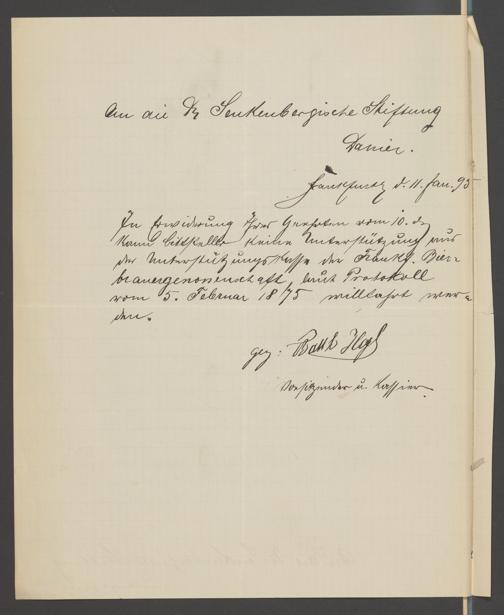 An die Dr Senkenbergische Stiftung
Dahier.
Frankfurt d. 11. Jan. 95
In Erwiderung Ihres Geehrten vom 10. d.
kann Bittsteller keine Unterstützung aus
der Unterstützungskasse der Frankf. Bier-
brauergenossenschaft, laut Protokoll
vom 5. Februar 1875 willfahrt wer-
den.
gez:
Vorsitzender u. Kassier.